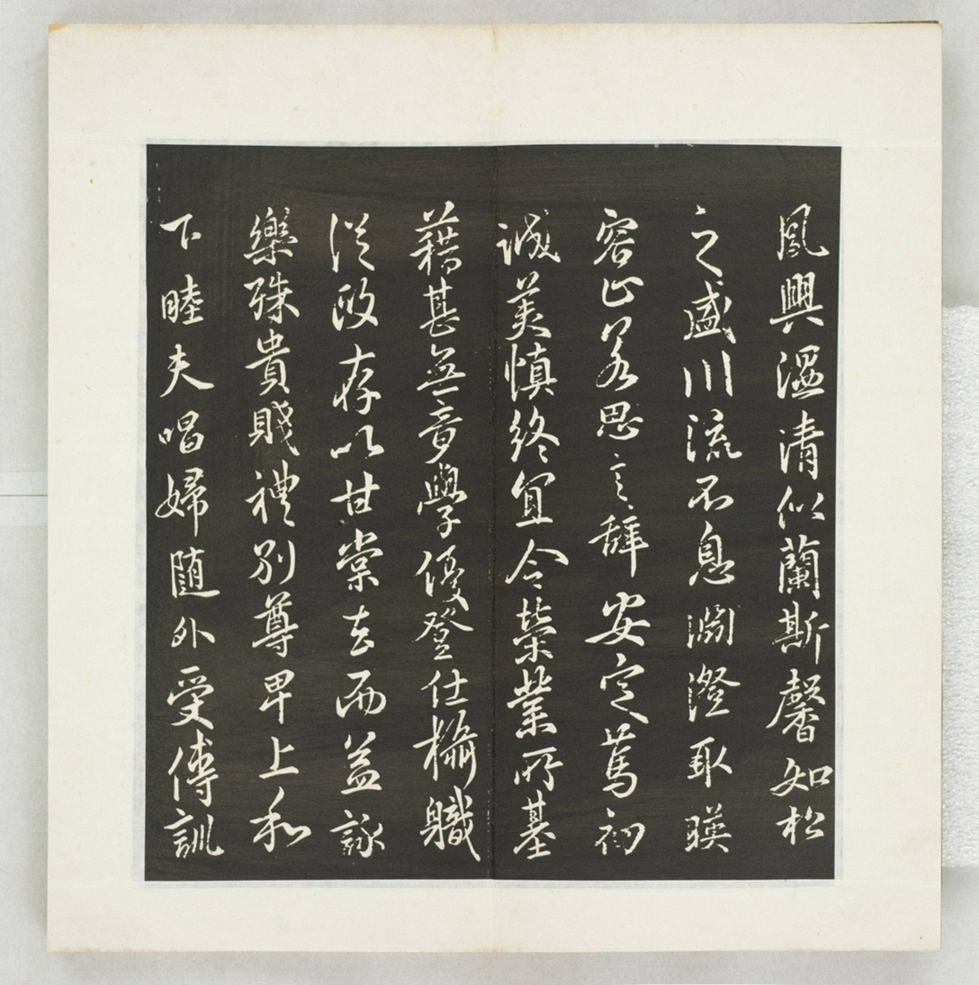 夙興溫清似蘭斯馨如松
之盛川流不息淵澄取暎
容止若思言辭安定篤初
誠美慎終宜令榮業所基
藉甚無竟學優登仕攝職
從政存以甘棠去而益詠
樂殊貴賤禮別尊卑上和
下睦夫唱婦隨外受傅訓